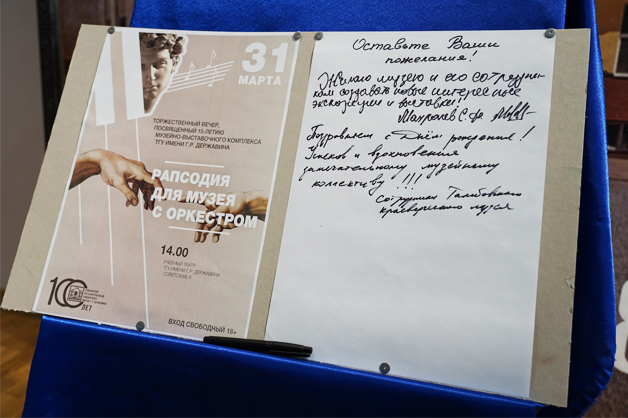 31
МАРТА
ТОРЖЕСТВЕННЫЙ ВЕЧЕР,
ПОСВЯЩЕННЫЙ 15-ЛЕТИЮ
МУЗЕЙНО-ВЫСТАВОЧНОГО КОМПЛЕКСА
ТГУ ИМЕНИ Г.Р. ДЕРЖАВИНА
РАПСОДИЯ
ДЛЯ МУЗЕЯ
С ОРКЕСТРОМ
14.00
УЧЕБНЫЙ ТЕАТР
ТГУ ИМЕНИ Г.Р. ДЕРЖАВИНА
СОВЕТСКАЯ, 6
100
ЛЕТ
ВХОД СВОБОДНЫЙ 18+
Оставьте Ваши
пожелания!
Желаю музею и его сотрудни-
кам создавать новые интересные
экспозиции и выставки!!
Поздравляем с Днём рождения!
Успехов и вдохновения
замечательному музейному
коллективу !!!
Сотрудники
краеведческого музея